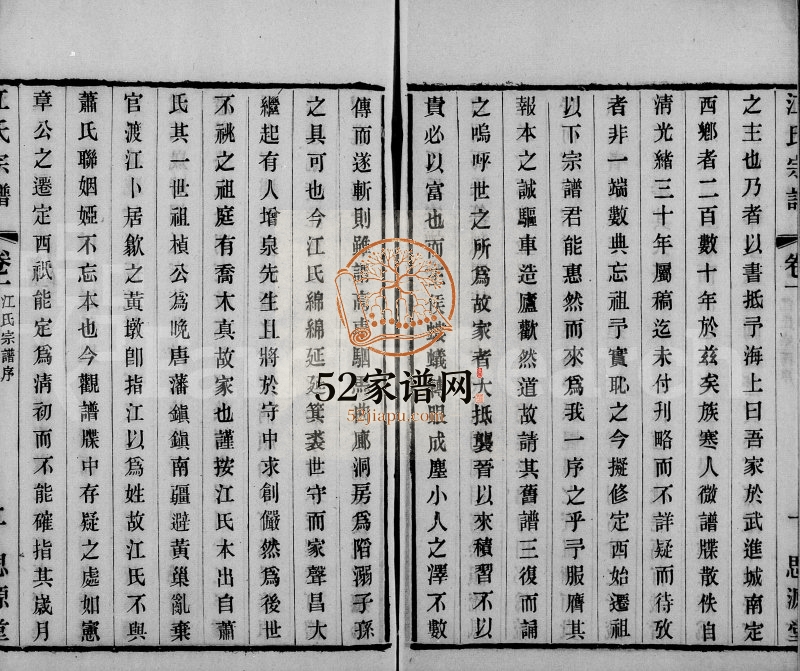 之主也乃者以書抵予海上曰吾家於武進城南定
西鄉者二百數十年於茲矣族寒人微譜牒散佚自
清光緒三十年屬稿迄未付刊略而不詳疑而待攷
者非一端數典忘祖予實耻之今擬修定西始遷祖
以下宗譜君能惠然而來為我一序之乎予服膺其
報本之誠驅車造廬歡然道故請其舊譜三復而誦
之嗚呼世之所為故家者大抵襲晉以來積習不以
貴必以富也而侯螻蟻轉眼成塵小人之澤不數
傳而遂斬則雖高車駟馬廊洞房為陷溺子孫
之具可也今江氏綿綿延延箕裘世守而家聲昌大
繼起有人增泉先生且將於守中求創儼然為後世
不祧之祖庭有喬木真故家也謹按江氏本出自蕭
氏其一世祖楨公為晚唐藩鎮鎮南疆避黃巢亂棄
官渡江卜居歙之黃墩卽指江以為姓故江氏不與
蕭氏聯姻婭不忘本也今觀譜牒中存疑之處如憲
章公之遷定西祇能定為清初而不能確指其歲月
江氏宗譜
卷一
江氏宗譜序
思源堂
52家谱网
52jiapu.com